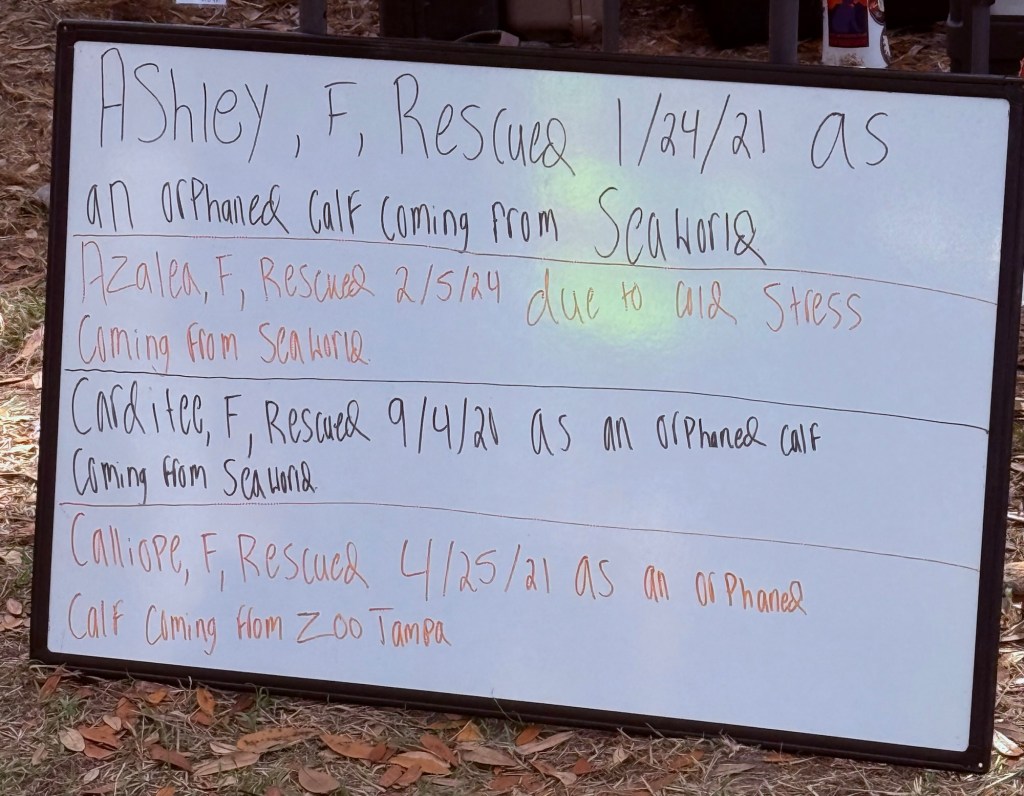 Ashley, F, Rescued 1/24/21 as
an orphaned calf coming from Seaworld
Azalea, F, Rescued 2/5/24 due to cold Stress
Coming from Seaworld
Carditee, F, Rescued 9/4/21 as an orphaned calf
Coming from Seaworld
Calliope, F, Rescued 4/25/21 as an orphaned
Calf Coming from Zoo Tampa